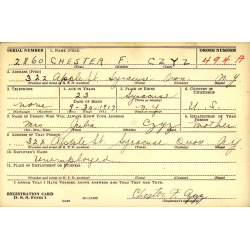 SERIAL NUMBER 1. NAME (Print) ORDER NUMBER
2860 CHESTER F. CZYZ 494 A
2. ADDRESS (Print)
322 Apple St. Syracuse Onon. N.Y.
3. TELEPHONE 4. AGE IN YEARS 5. PLACE OF BIRTH 6. COUNTRY OF CITIZENSHIP
23 Syracuse
none DATE OF BIRTH N.Y. U.S.
7. NAME OF PERSON WHO WILL ALWAYS KNOW YOUR ADDRESS 8. RELATIONSHIP OF THAT PERSON
Mrs Julia Czyz Mother
9. ADDRESS OF THAT PERSON
322 Apple St. Syracuse Onon N.Y.
10. EMPLOYER'S NAME
Unemployed
11. PLACE OF EMPLOYMENT OR BUSINESS
I AFFIRM THAT I HAVE VERIFIED ABOVE ANSWERS AND THAT THEY ARE TRUE.
REGISTRATION CARD
D. S. S. Form 1 Chester F. Czyz